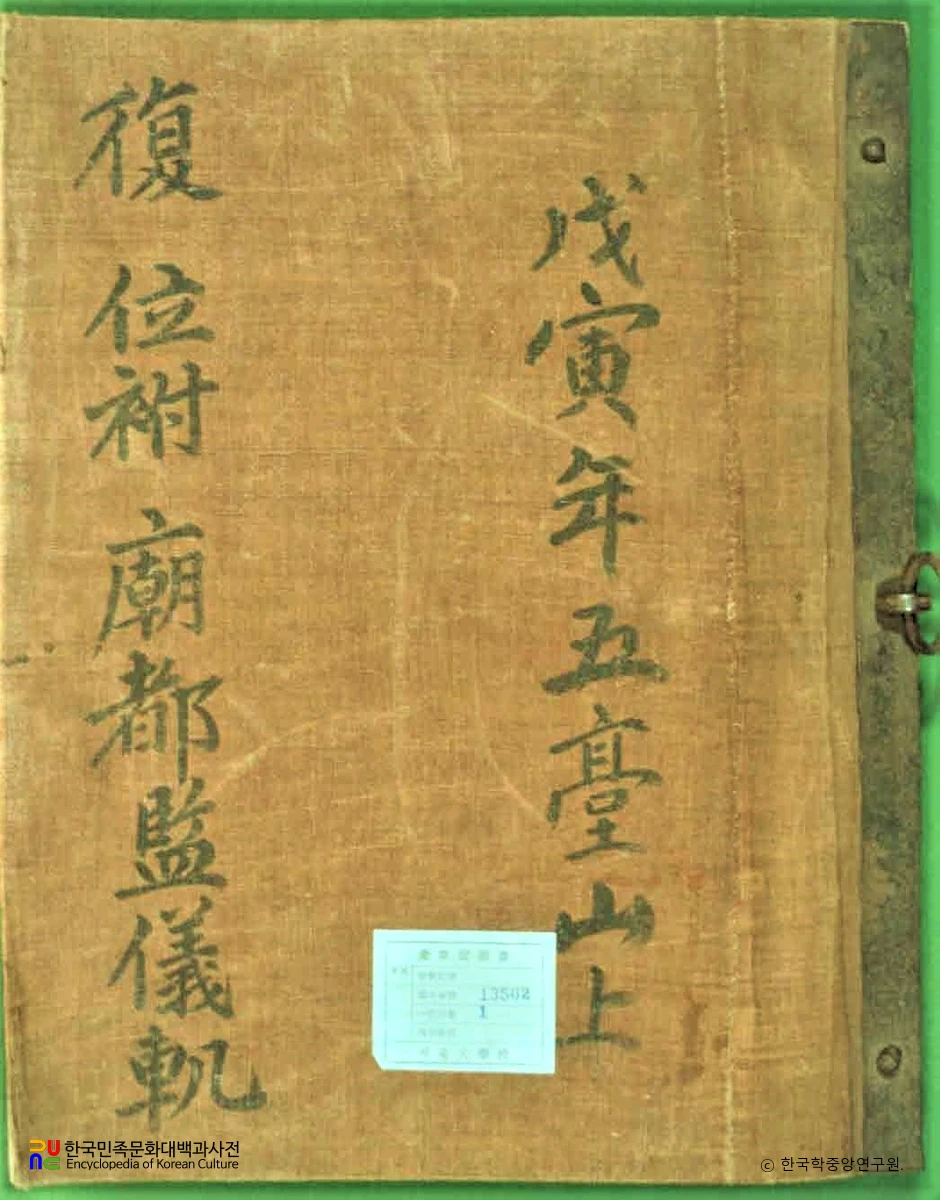 戊寅年五臺山上
復位祔廟都監儀軌
13502
1
한국민족문화대백과사전
Encyclopedia of Korean Culture
© 한국학중앙연구원.